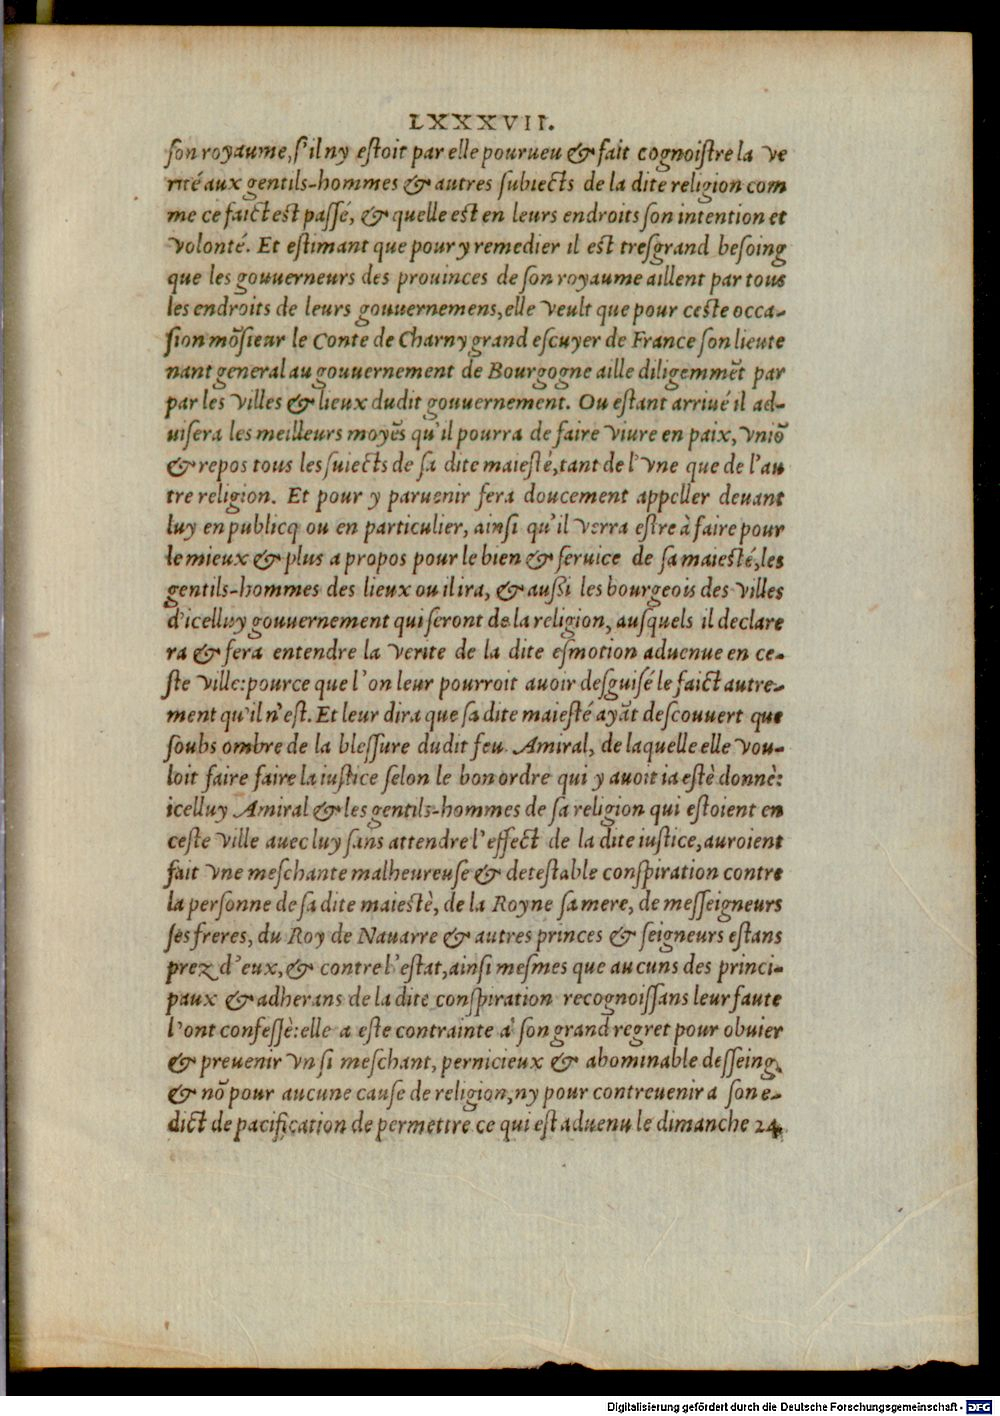 LXXXVII.
son royaume, s'il ny estoit par elle pourueu & fait cognoistre la ve
rité aux gentils-hommes & autres subiects de la dite religion com
me ce faict est passé, & quelle est en leurs endroits son intention et
volonté. Et estimant que pour y remedier il est tresgrand besoing
que les gouuerneurs des prouinces de son royaume aillent par tous
les endroits de leurs gouuernemens, elle veult que pour ceste occa-
sion mõsieur le Conte de Charny grand escuyer de France son lieute
nant general au gouuernement de Bourgogne aille diligemmẽt par
par les villes & lieux dudit gouuernement. Ou estant arriué il ad-
uisera les meilleurs moyẽs qu'il pourra de faire viure en paix, vniõ
& repos tous les suiects de sa dite maiesté, tant de l'vne que de l'au
tre religion. Et pour y paruenir fera doucement appeller deuant
luy en publicq ou en particulier, ainsi qu'il verra estre à faire pour
le mieux & plus a propos pour le bien & seruice de sa maiesté, les
gentils-hommes des lieux ou il ira, & aussi les bourgeois des villes
d'icelluy gouuernement qui seront de la religion, ausquels il declare
ra & fera entendre la verite de la dite esmotion aduenue en ce-
ste ville: pource que l'on leur pourroit auoir desguisé le faict autre-
ment qu'il n'est. Et leur dira que sa dite maiesté ayãt descouuert que
soubs ombre de la blessure dudit feu Amiral, de laquelle elle vou-
loit faire faire la iustice selon le bon ordre qui y auoit ia estè donnè:
icelluy Amiral & les gentils-hommes de sa religion qui estoient en
ceste ville auec luy sans attendre l'effect de la dite iustice, auroient
fait vne meschante malheureuse & detestable conspiration contre
la personne de sa dite maiestè, de la Royne sa mere, de messeigneurs
ses freres, du Roy de Nauarre & autres princes & seigneurs estans
prez d'eux, & contre l'estat, ainsi mesmes que aucuns des princi-
paux & adherans de la dite conspiration recognoissans leur faute
l'ont confessè: elle a este contrainte à son grand regret pour obuier
& preuenir vn si meschant, pernicieux & abominable desseing,
& nõ pour aucune cause de religion, ny pour contreuenir a son e-
dict de pacification de permettre ce qui est aduenu le dimanche 24.
Digitalisierung gefördert durch die Deutsche Forschungsgemeinschaft - DFG